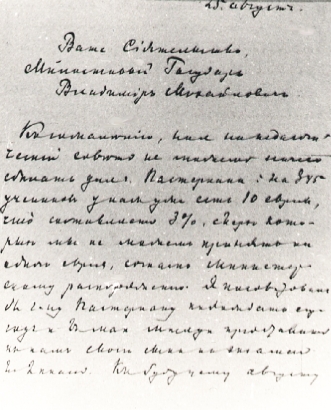 25. августъ.
Ваше Сіятельство,
Милостивый Государь
Владиміръ Михайловичъ
Къ сожалѣнію, ни я ни педагоги-
ческій совѣтъ не можемъ ничего
сдѣлать для г. Пастернака: на 345
учениковъ у насъ уже есть 10 евреевъ,
что составляетъ 3%, сверхъ кото-
рыхъ мы не можемъ принять ни
одного еврея, согласно Министер-
скому распоряженію. Я посовѣтовалъ
бы г-ну Пастернаку подождать еще
годъ и въ маѣ мѣсяцѣ представить
къ намъ своего сына на экзаменъ
во 2 классъ. Къ будущему августу